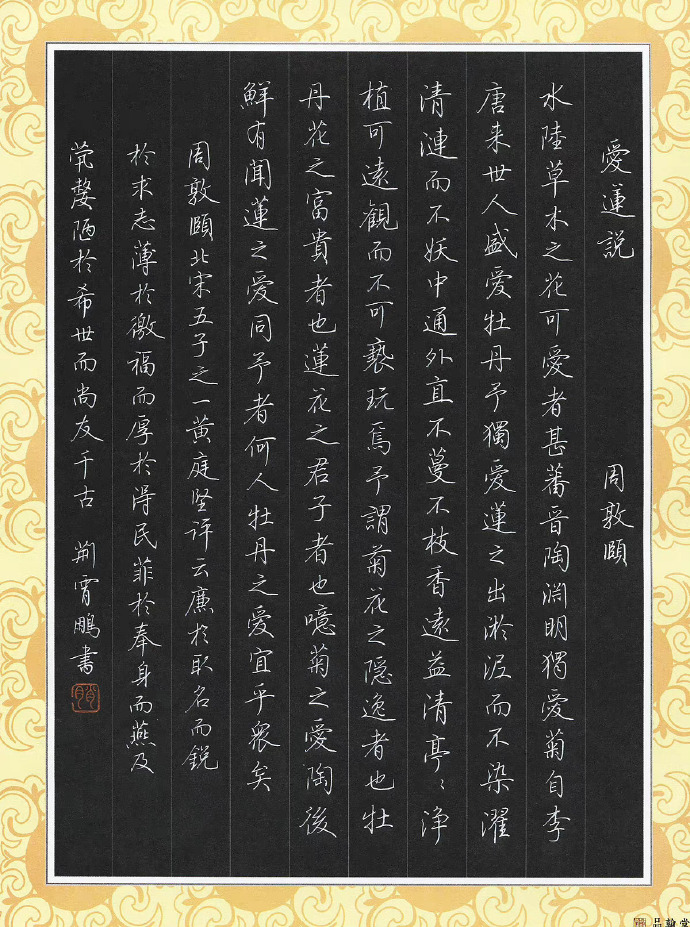 愛蓮説　周敦頤
水陸草木之花可愛者甚蕃晋陶淵明獨愛菊自李
唐来世人盛爱牡丹予獨愛蓮之出淤泥而不染濯
清漣而不妖中通外直不蔓不枝香遠益清亭〻淨
植可遠観而不可褻玩焉予謂菊花之隠逸者也牡
丹花之富貴者也蓮花之君子者也噫菊之愛陶後
鮮有聞蓮之愛同予者何人牡丹之愛宜乎衆矣
周敦頤北宋五子之一黄庭坚评云廉於取名而銳
於求志薄於徼福而厚於得民菲於奉身而燕及
茕嫠陋於希世而尚友千古　荆霄鹏書
品翰堂